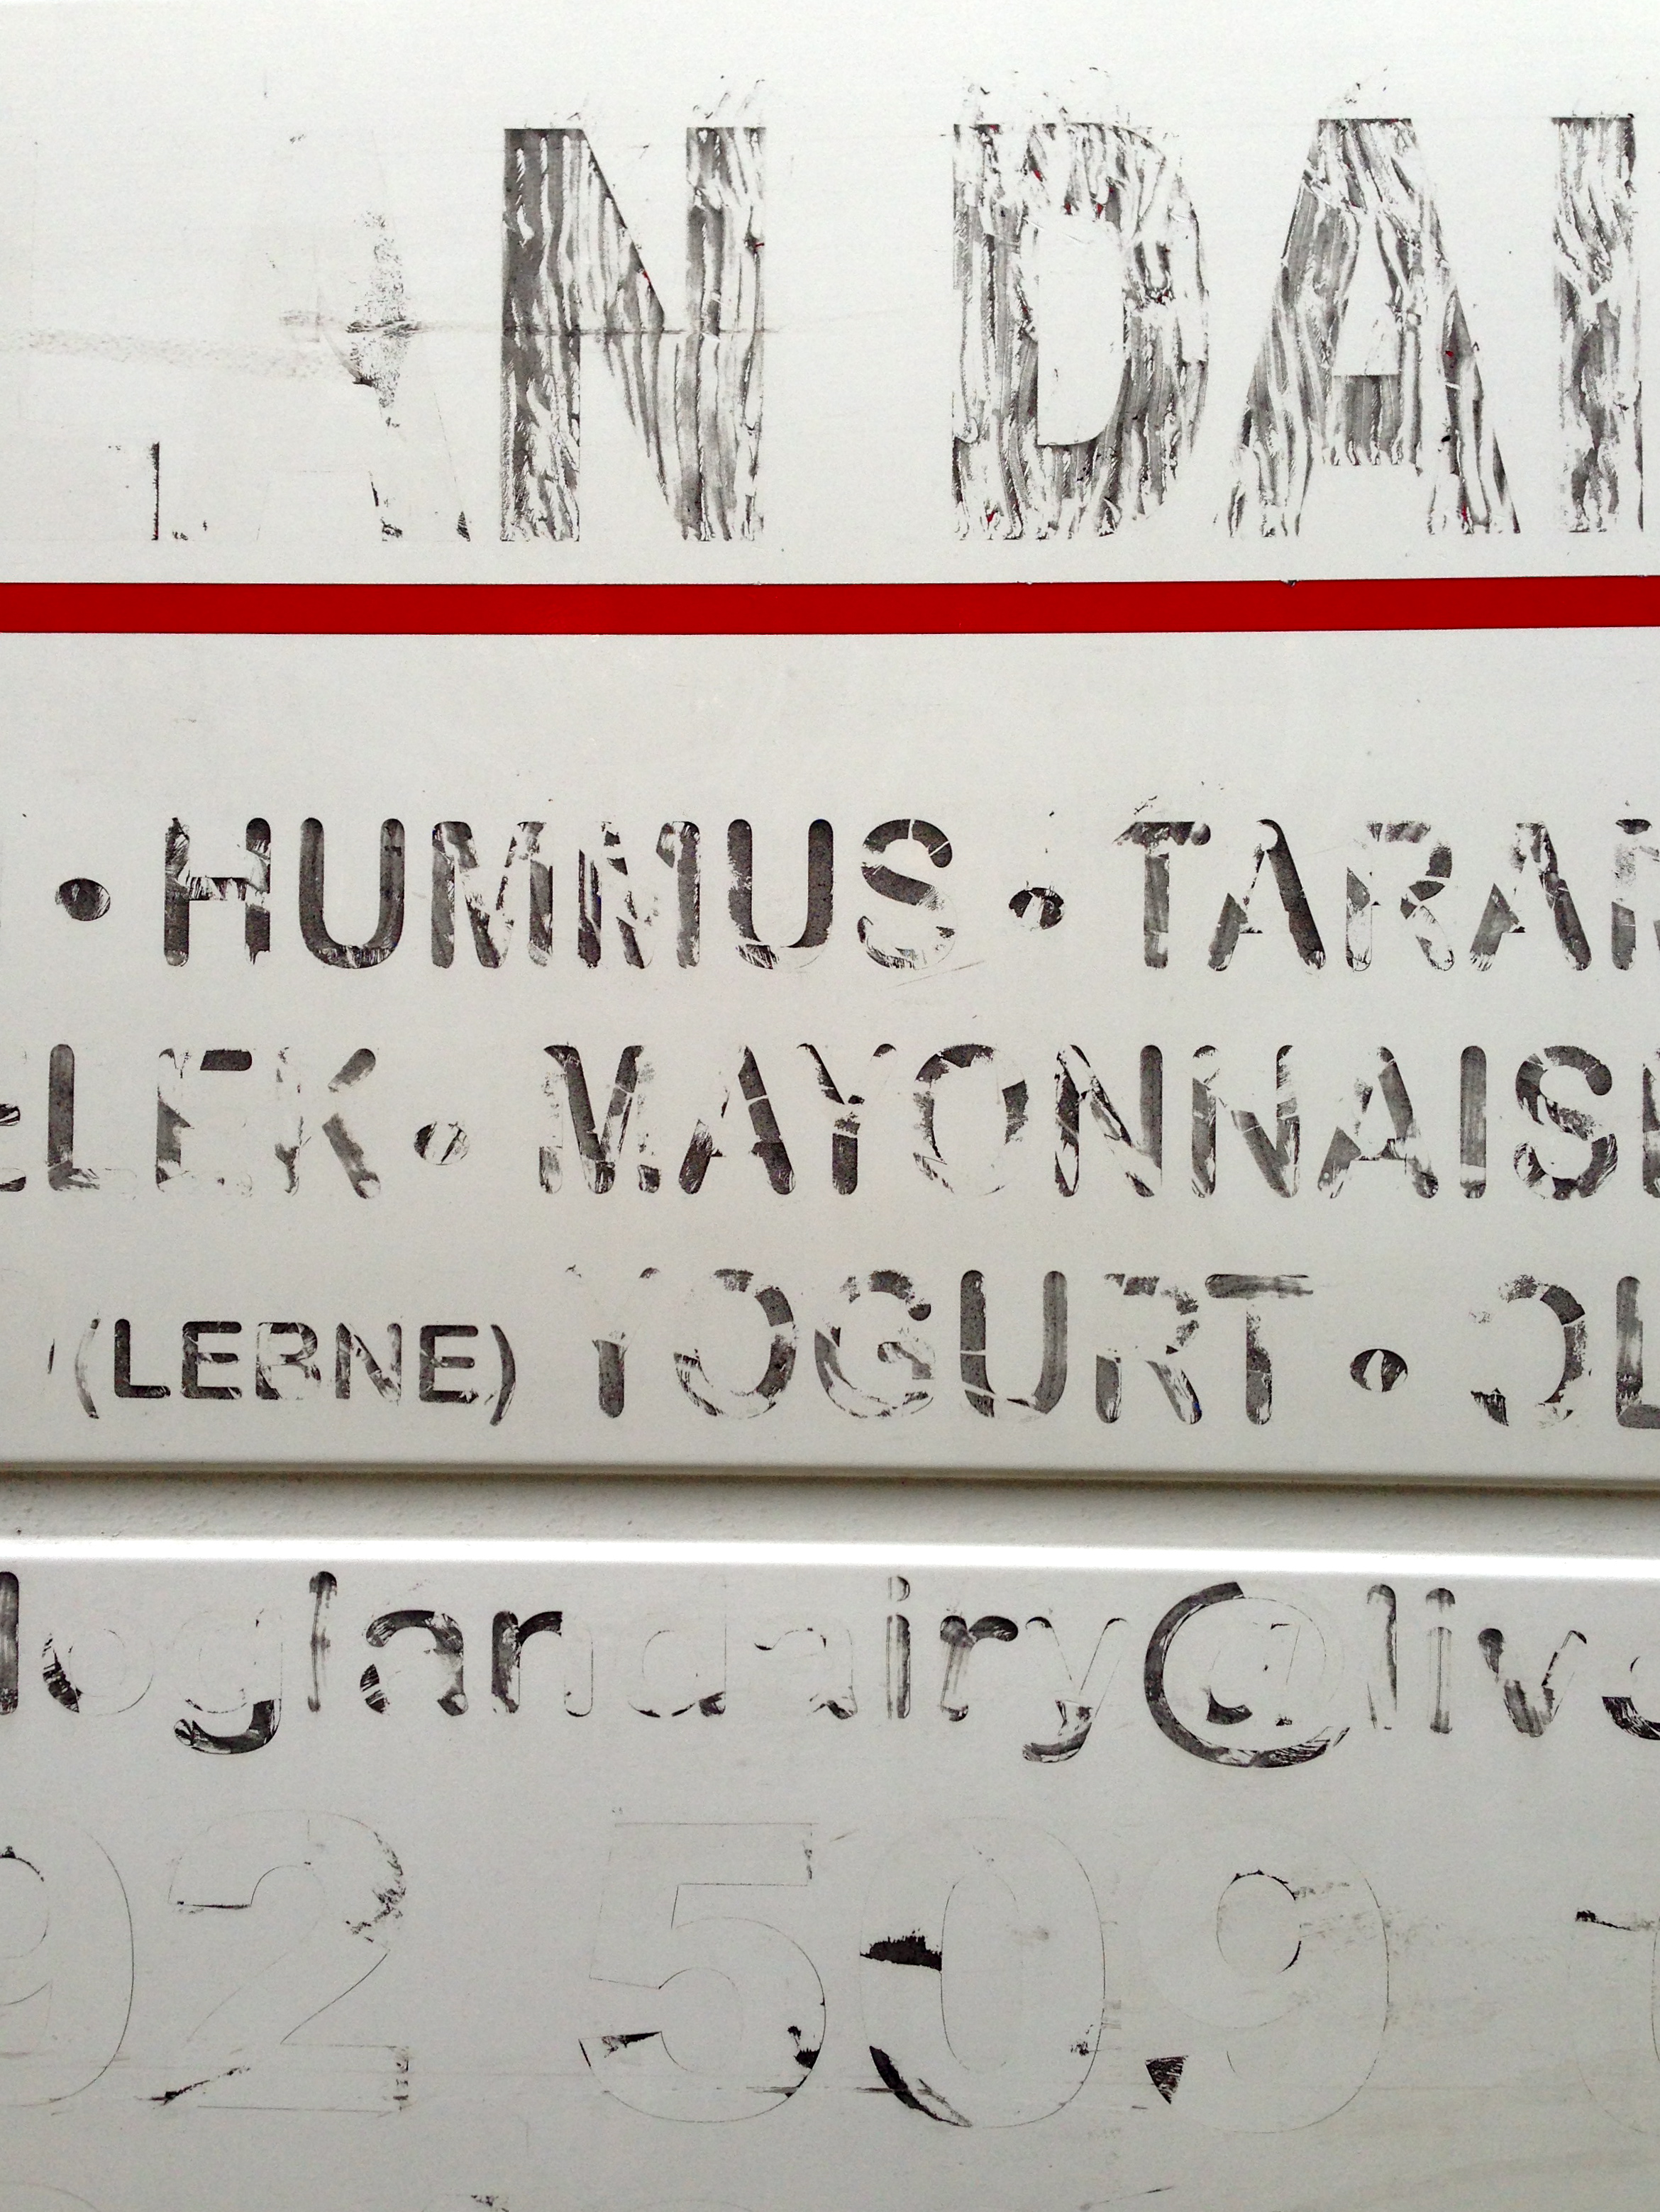 LAN DAI
• HUMMUS • TARAM
ELEK • MAYONNAISE
(LEBNE) YOGURT • OL
loglandairy@live
92 509